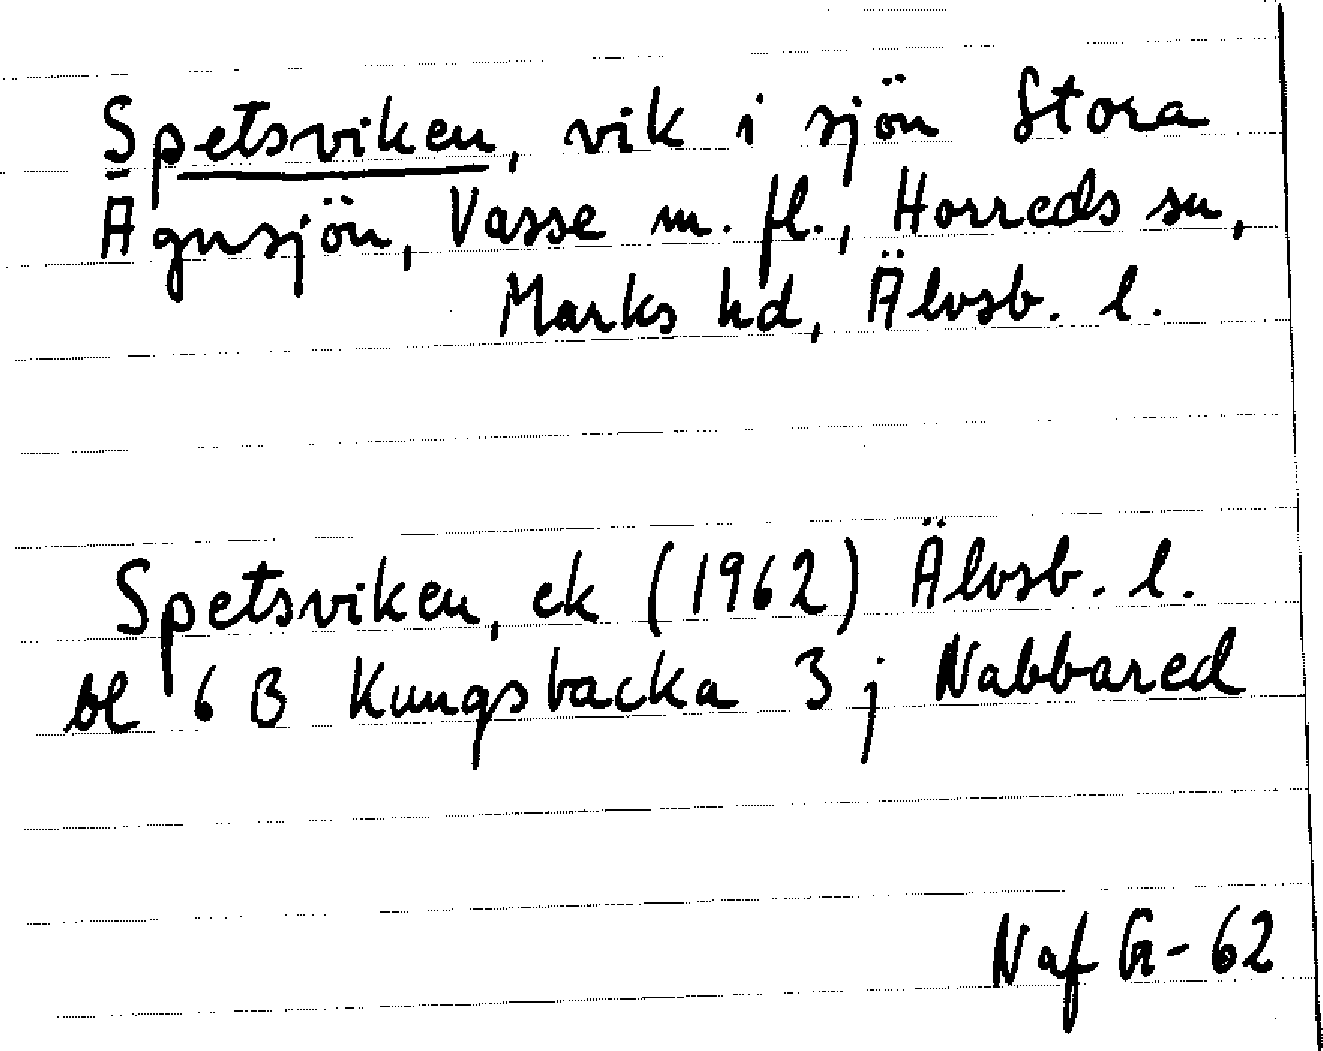 Spetsviken, vik i sjön Stora
Agnsjön, Vasse m. fl., Horreds sn,
Marks hd, Älvsb. l.
Spetsviken, ek (1962) Älvsb. l.
bl 6 B Kungsbacka 3 j Nabbared
Naf Gr-62